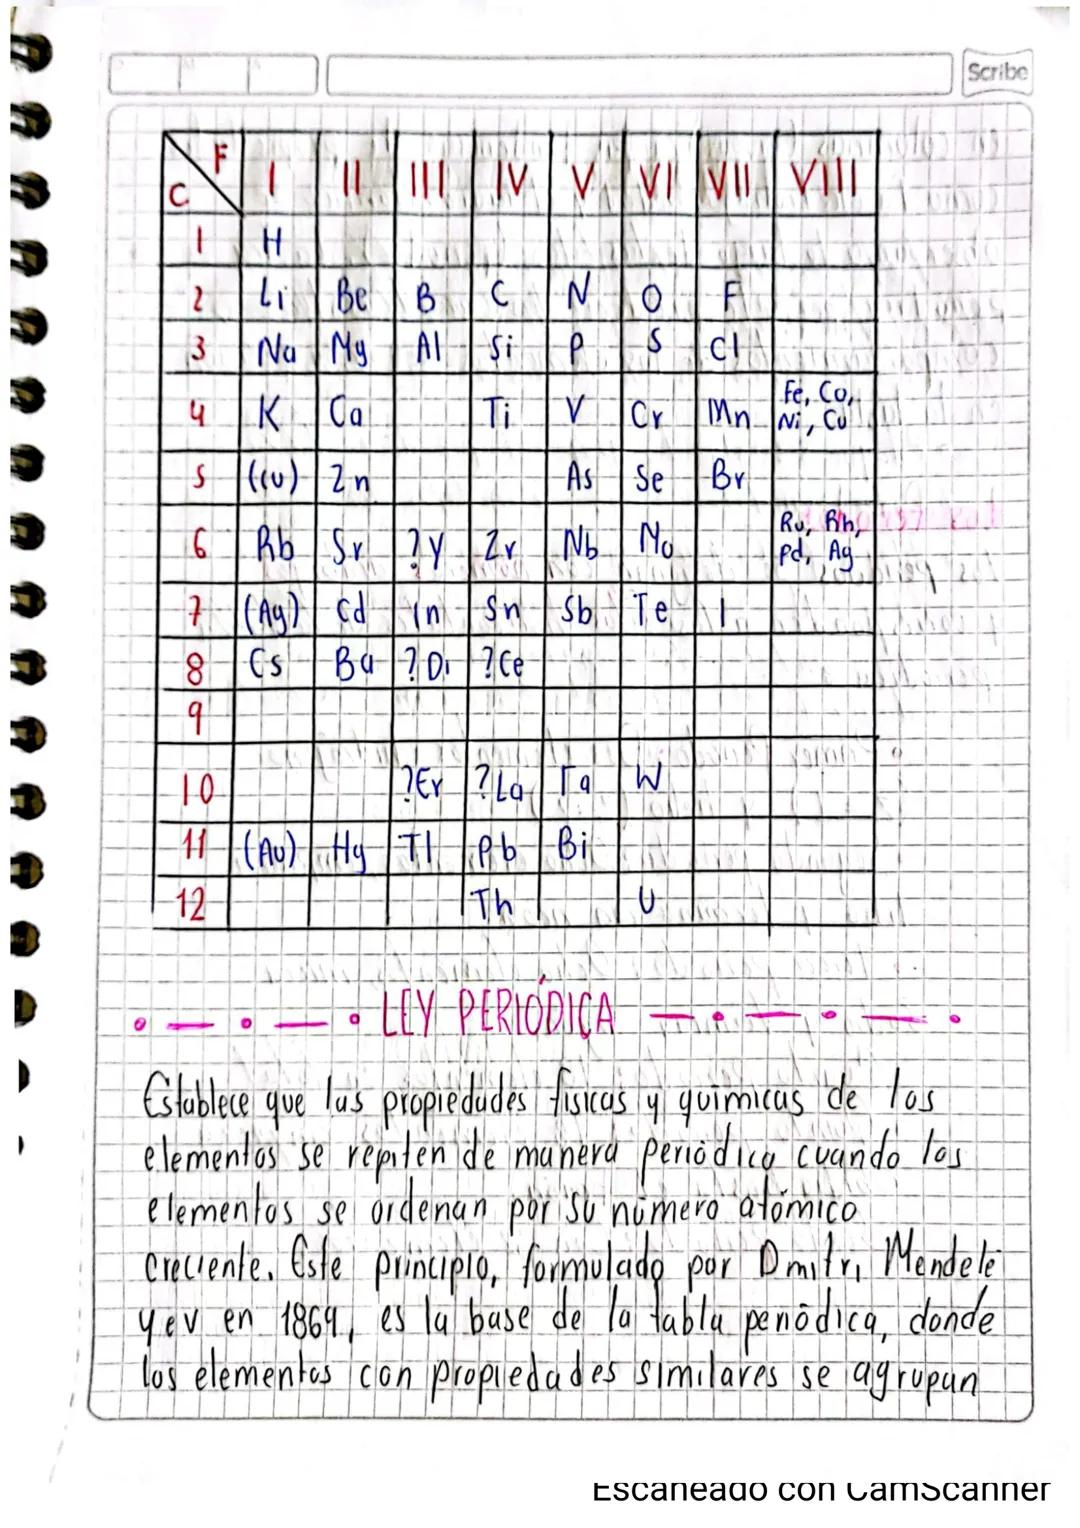 Scribe
F
C I II III IV V VI VII VIII
1 H
2 Li Be B C N O F
3 Na Mg Al Si P S Cl
4 K Ca Ti V Cr Mn Fe, Co, Ni, Cu
5 (Cu) Zn As Se Br
6 Rb Sr ?Y Zr Nb Mo Ru, Rh, Pd, Ag
7 (Ag) Cd In Sn Sb Te I
8 Cs Ba ?Di ?Ce
9
10 ?Er ?La Ta W
11 (Au) Hg Tl Pb Bi
12 Th U
LEY PERIÓDICA
Establece que las propiedades físicas y químicas de los
elementos se repiten de manera periódica cuando los
elementos se ordenan por su número atómico
creciente. Este principio, formulado por Dmitri Mendelé
yev en 1869, es la base de la tabla periódica, donde
los elementos con propiedades similares se agrupan
Escaneado con CamScanner